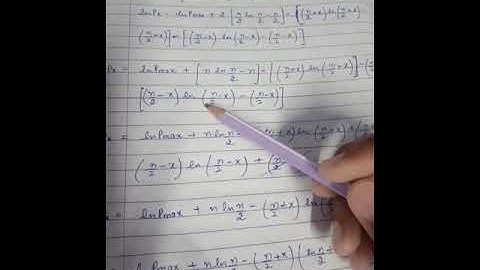 lnPx = lnPmax + 2 [n/2 ln n/2 - n/2] - [(n/2+x) ln(n/2+x)
(n/2+x)] - [(n/2-x) ln(n/2-x) - (n/2-x)]
= lnPmax + [n ln n/2 - n] - [(n/2+x) ln(n/2+x)] -
[(n/2-x) ln (n/2-x) - (n/2-x)]
= lnPmax + n ln n/2 - +x) ln(n/2+x) +
(n/2-x) ln (n/2-x) + (n/2
= lnPmax + n ln n/2 - (n/2+x) ln(
lnPmax + n ln n/2 - (n/2+x) (ln n/2 +